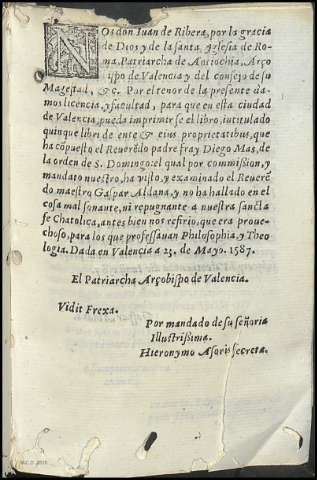 NOs don Iuan de Ribera, por la gracia
de Dios y de la santa Iglesia de Ro-
ma, Patriarcha de Antiochia, Arço
bispo de Valencia y del consejo de su
Magestad, &c. Por el tenor de la presente da-
mos licencia, y facultad, para que en esta ciudad
de Valencia, pueda imprimirse el libro, intitulado
quinque libri de ente & eius proprietatibus, que
ha cōpuesto el Reuerēdo padre fray Diego Mas, de
la orden de S. Domingo: el qual por commission, y
mandato nuestro, ha visto, y examinado el Reuerē
do maestro Gaspar Aldana, y no ha hallado en el
cosa mal sonante, ni repugnante a nuestra sancta
fe Chatolica, antes bien nos refirio, que era proue-
choso, para los que professauan Philosophia, y Theo
logia. Dada en Valencia a 23. de Mayo. 1587.
El Patriarcha Arçobispo de Valencia.
Vidit Frexa.
Por mandado de su señoria
Illustrissima.
Hieronymo Asoris secreta.